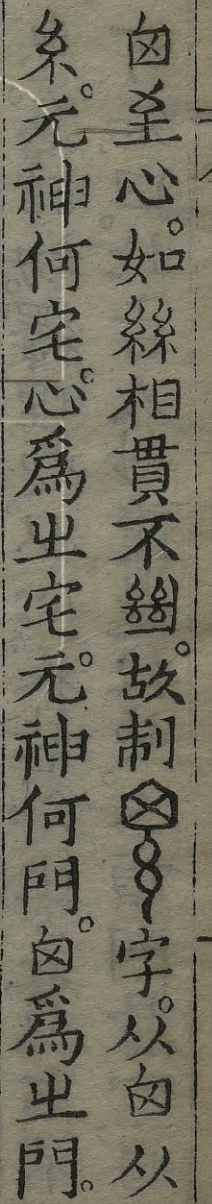 囟至心。如絲相貫不𢇍。故制字。从囟从
糸。元神何宅。心爲㞢宅。元神何門。囟爲㞢門。